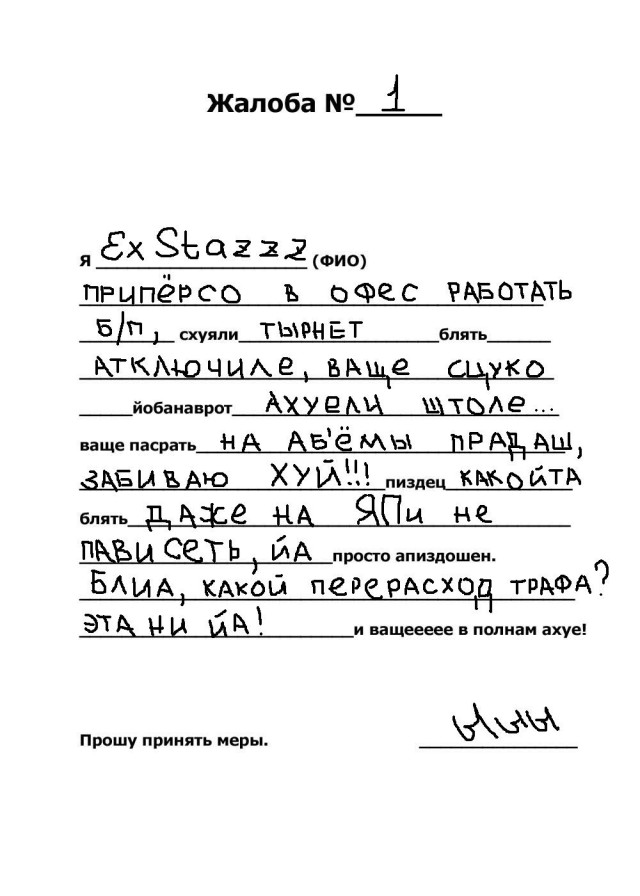 Жалоба № 1
я Ex Stazzz (ФИО)
ПРИПЁРСО В ОФЕС РАБОТАТЬ
Б/П, схуяли ТЫРНЕТ блять
АТКЛЮЧИЛЕ, ВАЩЕ СЦУКО
йобанаврот АХУЕЛИ ШТОЛЕ...
ваще пасрать НА АБ'ЁМЫ ПРАДАШ,
ЗАБИВАЮ ХУЙ!!! пиздец КАКОЙТА
блять ДАЖЕ НА ЯПи не
ПАВИСЕТЬ, ЙА просто апиздошен.
БЛИА, КАКОЙ ПЕРЕРАСХОД ТРАФА?
ЭТА НИ ЙА! и ващеееее в полнам ахуе!
Прошу принять меры. ЫЫЫ